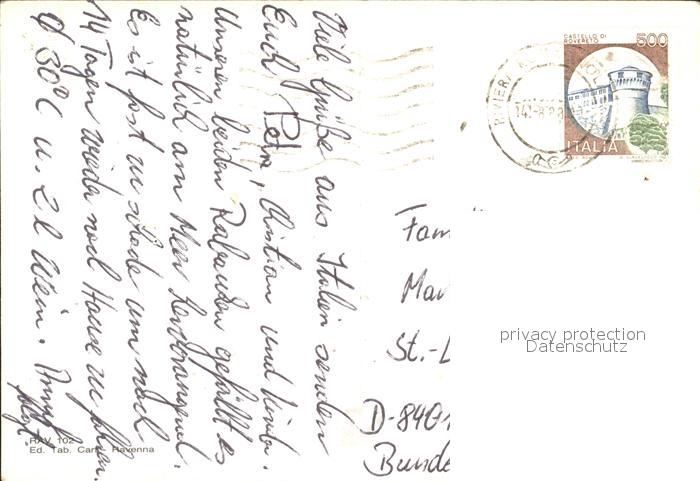 Viele Grüße aus Italien senden
Euch Petra, Christian und Kinder.
Unseren beiden Rabauken gefällt es
natürlich am Meer hervorragend.
Es ist fast zu schade um nach
14 Tagen wieder nach Hause zu fahren.
Ø 30°C u. 2 l Wein.
folgt
CASTELLO DI
ROVERETO
500
ITALIA
RIVIERA
Fam
Mar
St.-L
D-8401
Bunde
privacy protection
Datenschutz
RAV 102
Ed. Tab. Cart. Ravenna